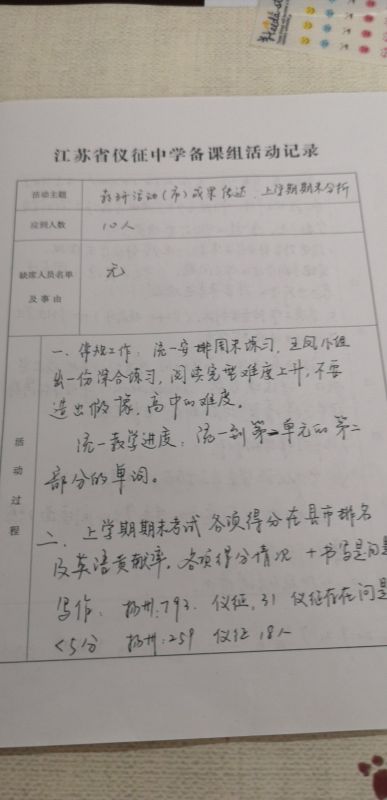 江苏省仪征中学备课组活动记录
活动主题 教研活动(市)成果传达 上学期期末分析
应到人数 10人
缺席人员名单及事由 无
活动过程
一、常规工作:统一安排周末练习,五周小组
出一份综合练习,阅读完型难度上升,不要
造出假象,高中的难度。
统一教学进度:统一到第一单元的第二
部分的单词。
二、上学期期末考试各项得分在县市排名
及英语贡献率。各项得分情况 + 书写是问题
写作: 扬州:793. 仪征,31 仪征存在问题
<5分 扬州:259 仪征 18人